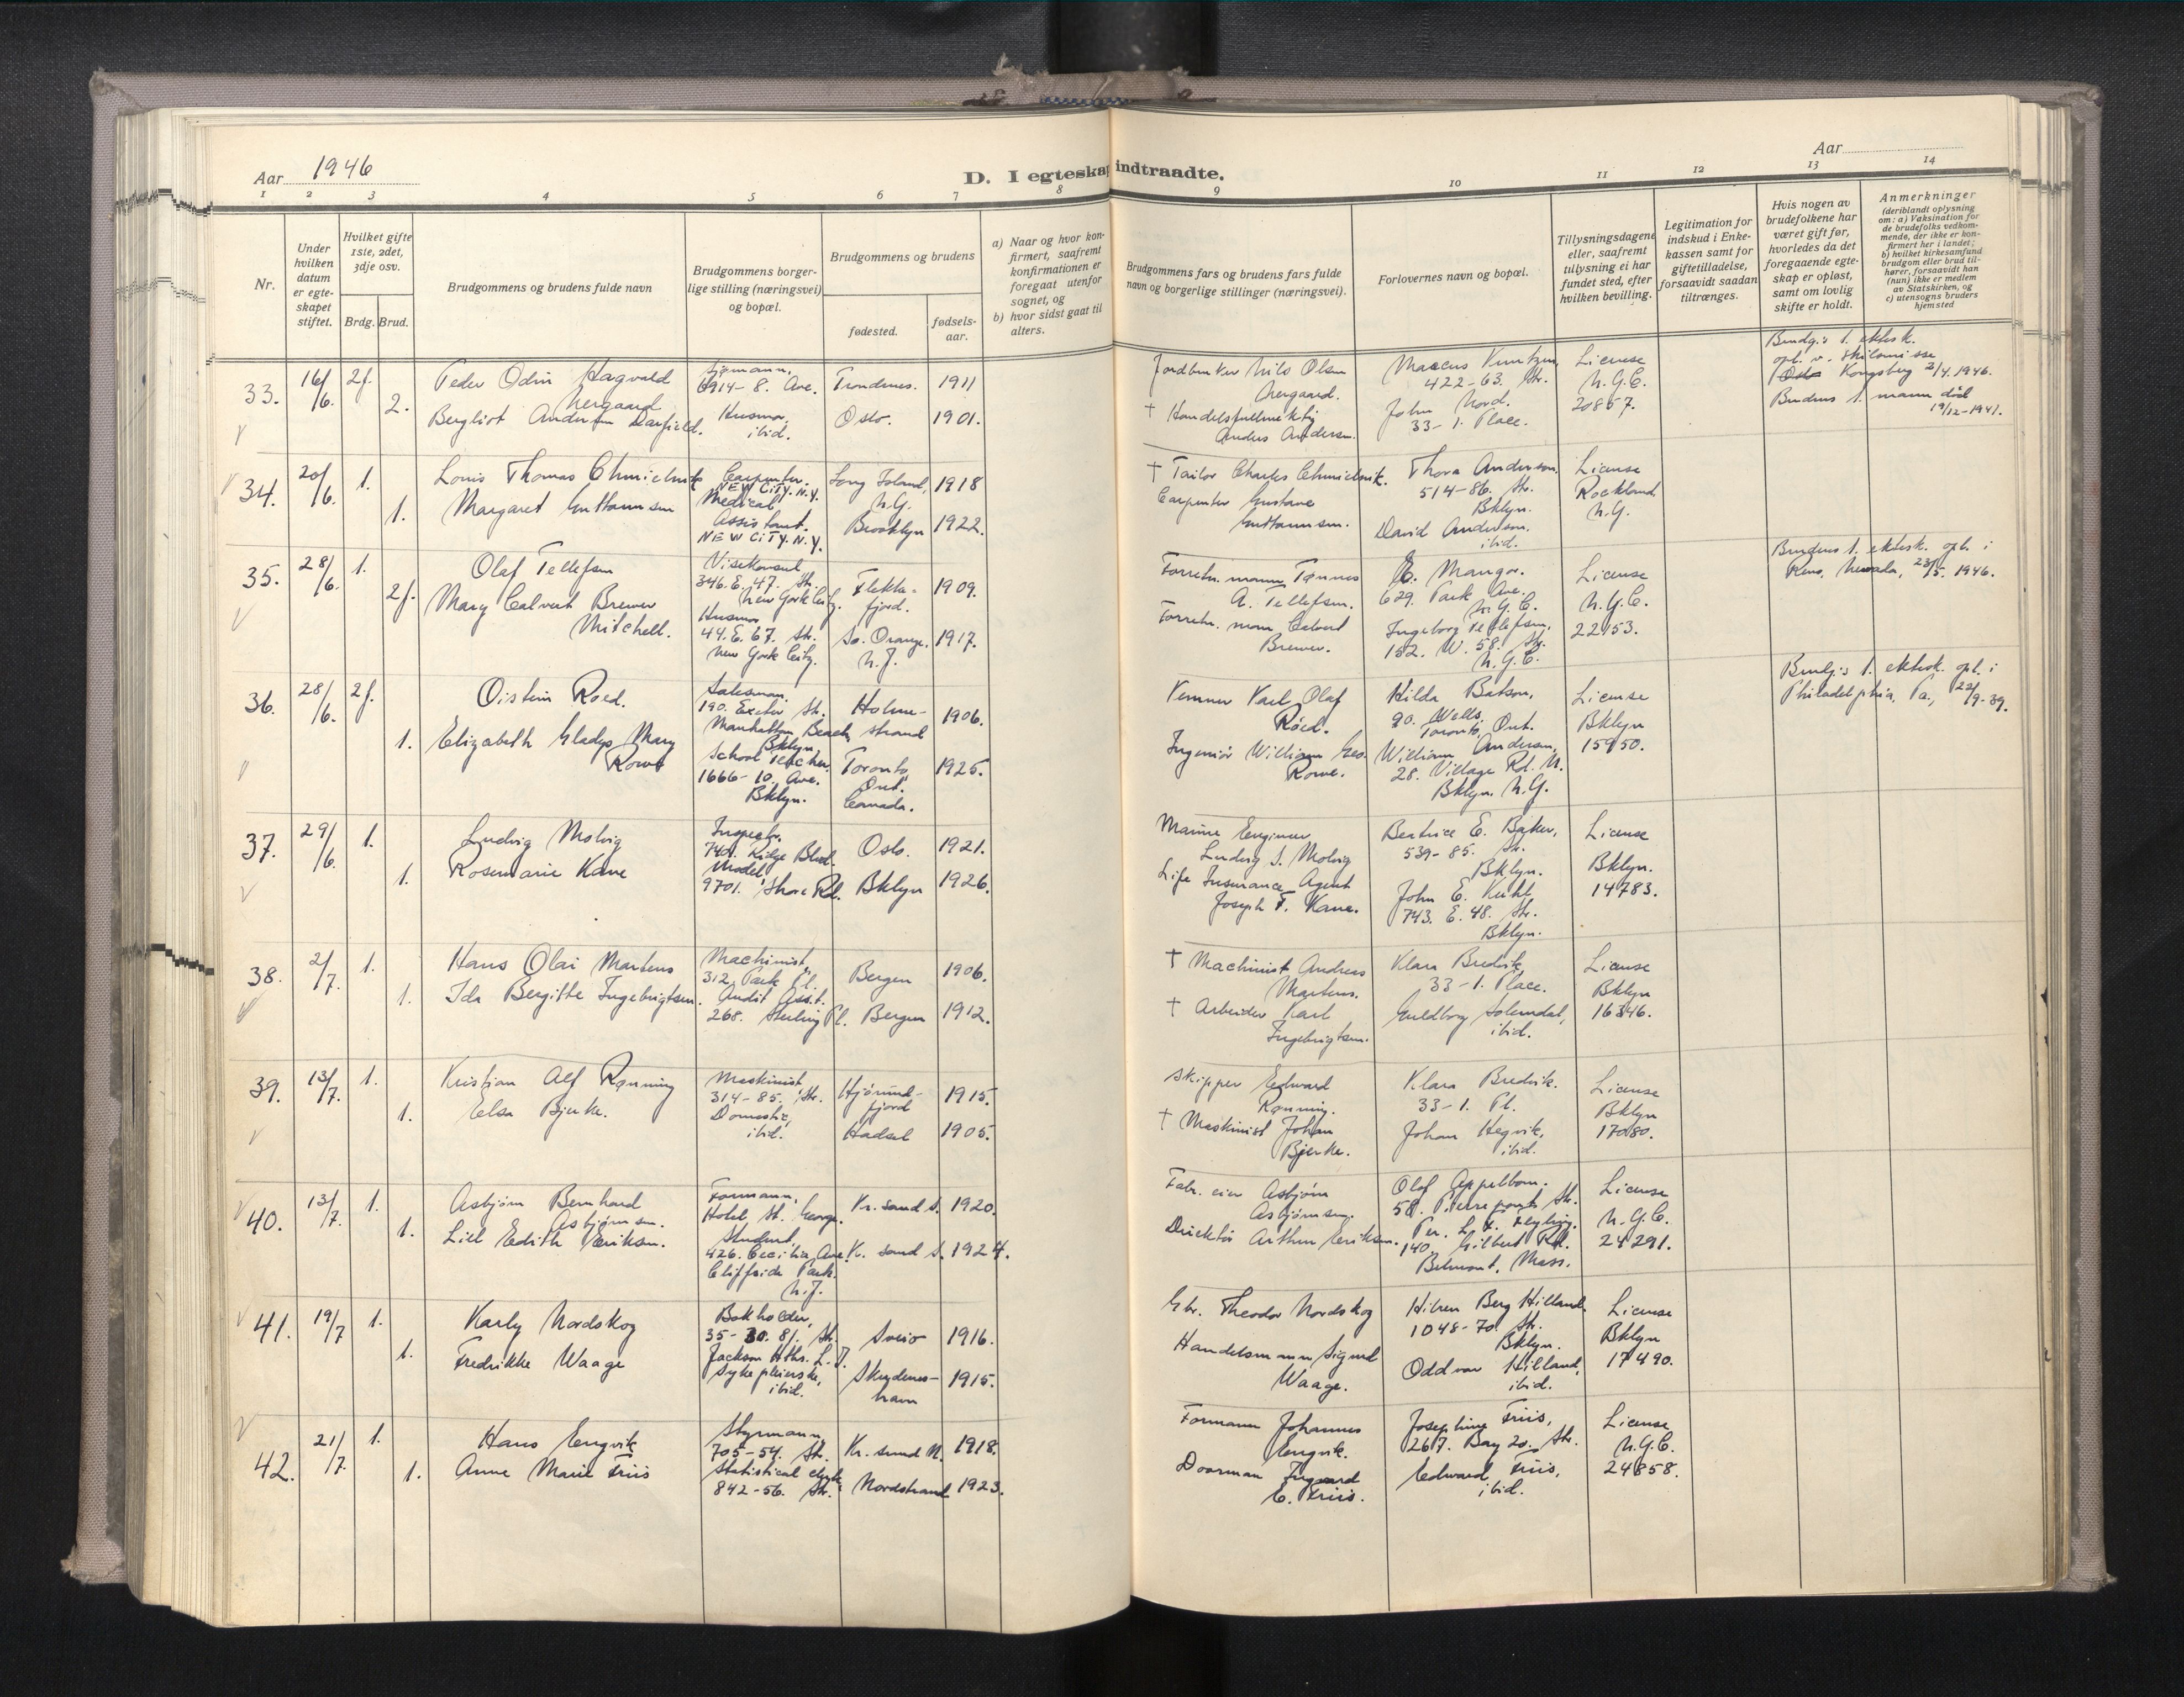 Aar 1946
D. I egteskap indtraadte.
Aar
1 2 3 4 5 6 7 8 9 10 11 12 13 14
Nr.
Under hvilken datum er egteskapet stiftet.
Hvilket gifte 1ste, 2det, 3dje osv.
Brdg. Brud.
Brudgommens og brudens fulde navn
Brudgommens borgerlige stilling (næringsvei) og bopæl.
Brudgommens og brudens
fødested.
fødselsaar.
a) Naar og hvor konfirmert, saafremt konfirmationen er foregaat utenfor sognet, og
b) hvor sidst gaat til alters.
Brudgommens fars og brudens fars fulde navn og borgerlige stillinger (næringsvei).
Forlovernes navn og bopæl.
Tillysningsdagene eller, saafremt tillysning ei har fundet sted, efter hvilken bevilling.
Legitimation for indskud i Enkekassen samt for giftetilladelse, forsaavidt saadan tiltrænges.
Hvis nogen av brudefolkene har været gift før, hvorledes da det foregaaende egteskap er opløst, samt om lovlig skifte er holdt.
Anmerkninger
(deriblandt oplysning om: a) Vaksination for de brudefolks vedkommende, der ikke er konfirmert her i landet; b) hvilket kirkesamfund brudgom eller brud tilhører, forsaavidt han (hun) ikke er medlem av Statskirken, og c) utensogns bruders hjemsted
33. 16/6. 2f. 2.
Peder Odin Hagvald
Aergaard
Bergliot Andersen Barfield.
Sjømann,
6914-8. Ave.
Husmor,
ibid.
Trondenes. 1911
Oslo. 1901.
Jordbruker Nils Olsen
Aergaard.
† Handelsfullmektig
Anders Andersen.
Marcus Knutzen,
422-63. Str.
John Nord.
33-1. Place.
License
N.Y.C.
20867.
Brudg.s 1. ektesk.
opl. v. skilsmisse
Kongsberg 2/4.1946.
Brudens 1. mann død
19/12-1941.
34. 20/6. 1. 1.
Louis Thomas Chmielnik
Margaret Guttormsen
Carpenter.
NEW CITY. N.Y.
Medical
Assistant.
NEW CITY. N.Y.
Long Island, N.Y. 1918
Brooklyn 1922.
† Tailor Charles Chmielnik.
Carpenter Gustave
Guttormsen.
Thora Anderson.
514-86. Str.
Bklyn.
David Anderson.
ibid.
License
Rockland
N.Y.
35. 28/6. 1. 2f.
Olaf Tellefsen
Mary Calvert Brewer
Mitchell.
Visekonsul
346. E. 47. Str.
New York City.
Husmor
44. E. 67. Str.
New York City.
Flekkefjord. 1909.
So. Orange, N.J. 1917.
Forretn. mann Tønnes
A. Tellefsen.
Forretn. mann Calvert
Brewer.
E. Mangor.
629. Park Ave.
N.Y.C.
Ingeborg Tellefsen,
152. W. 58. Str.
N.Y.C.
License
N.Y.C.
22153.
Brudens 1. ektesk. opl. i
Reno, Nevada, 23/5. 1946.
36. 28/6. 2f. 1.
Oistein Roed.
Elizabeth Gladys Mary
Rowe
Salesman,
190. Exeter Str.
Manhattan Beach,
Bklyn.
School Teacher
1666-10. Ave.
Bklyn.
Holmestrand 1906.
Toronto, Ont. Canada. 1925.
Kemner Karl Olaf
Röed.
Ingeniør William Geo.
Rowe.
Hilda Batson,
90. Wells,
Toronto, Ont.
William Andersen,
28. Village Rd. N.
Bklyn. N.Y.
License
Bklyn
15950.
Brudg.s 1. ektesk. opl. i
Philadelphia, Pa, 22/9-39.
37. 29/6. 1. 1.
Ludvig Molvig
Rosemarie Kane
Inspector.
7401. Ridge Blvd.
Model
9701. Shore Rd.
Oslo. 1921.
Bklyn 1926.
Marine Engineer
Ludvig S. Molvig
Life Insurance Agent
Joseph F. Kane.
Beatrice E. Baker,
539-85. Str.
Bklyn.
John E. Kuhl,
743. E. 48. Str.
Bklyn.
License
Bklyn.
14783.
38. 2/7. 1. 1.
Hans Olai Martens
Ida Bergitte Ingebrigtsen.
Machinist,
312 Park Pl.
Audit Ass.t.
268. Sterling Pl.
Bergen 1906.
Bergen 1912.
† Machinist Andreas
Martens.
† Arbeider Karl
Ingebrigtsen.
Klara Bredvik,
33-1. Place.
Guldborg Solemdal,
ibid.
License
Bklyn
16346.
39. 13/7. 1. 1.
Kristian Alf Rønning
Elsa Bjerke.
Maskinist
314-85. Str.
Domestic,
ibid.
Hjørundfjord 1915.
Hadsel 1905.
Skipper Edward
Rønning.
† Maskinist Johan
Bjerke.
Klara Bredvik.
33-1. Pl.
Johan Hegvik,
ibid.
License
Bklyn
17080.
40. 13/7. 1. 1.
Asbjørn Bernhard
Asbjørnsen.
Lill Edith Eriksen.
Formann,
Hotel St. George.
Student,
426. Cecilia Ave.
Cliffside Park.
N.J.
Kr. sand S. 1920.
Kr. sand S. 1924.
Fabr. eier Asbjørn
Asbjørnsen.
Direktør Arthur Eriksen.
Olaf Appelbom.
58. Pierrepont Str.
140. Gilbert Rd.
Belmont, Mass.
License
N.Y.C.
24291.
41. 19/7 1. 1.
Karly Nordskog
Fredrikke Waage
Bokholder,
35-30. 81. Str.
Jackson Hths. L.I.
Sykepleierske,
ibid.
Sveio 1916.
Skudeneshavn 1915.
Gbr. Theodor Nordskog
Handelsmann Sigurd
Waage.
Berg Hilland
1048-70. Str.
Bklyn.
Oddvar Hilland,
ibid.
License
Bklyn
17490.
42. 21/7. 1. 1.
Hans Engvik
Anne Marie Friis
Styrmann,
705-54. Str.
Statistical clerk
842-56. Str.
Kr. sund N. 1918.
Nordstrand 1923.
Formann Johannes
Engvik.
Doorman Ingvard
E. Friis.
Josephine Friis,
267. Bay 20. Str.
Edward Friis,
ibid.
License
N.Y.C.
24858.